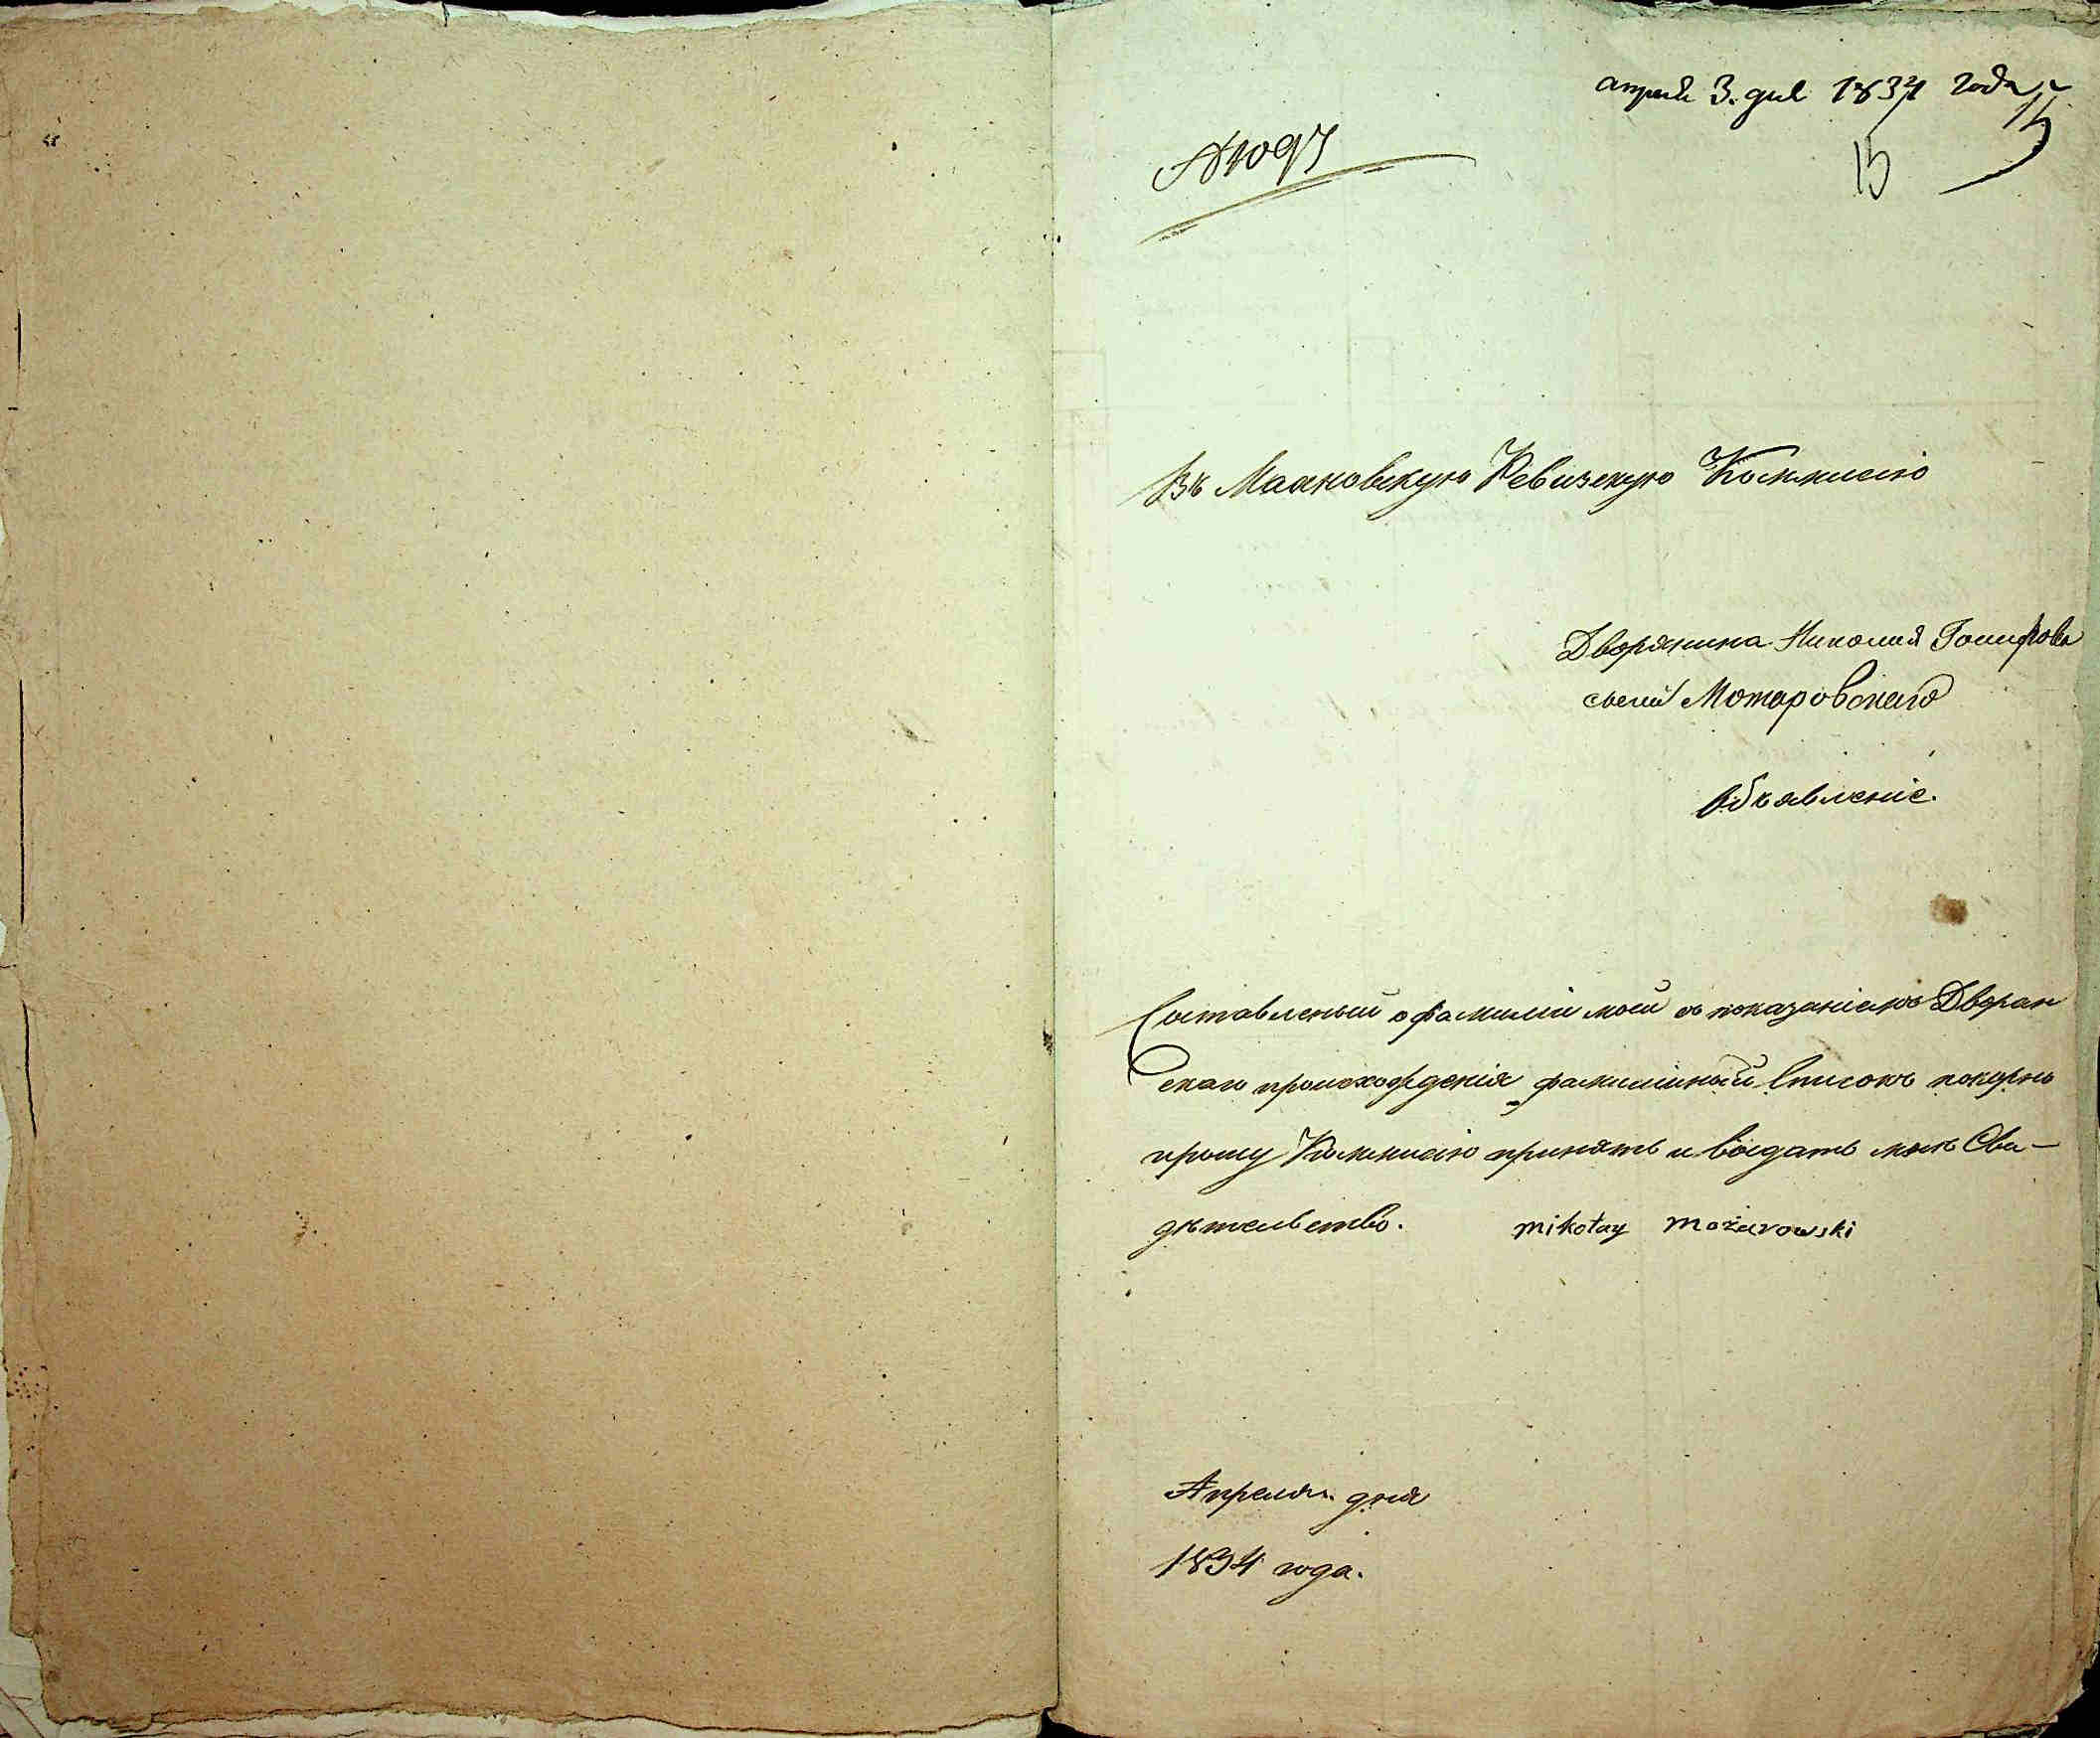 апреля 3. дня 1834 года
№1097
15
15
Въ Махновскую Ревизскую Коммисію
Дворянина Николая
Можаровскаго
Объявленіе.
Составленный о фамиліи моей съ показаніемъ Дворян
скаго происхожденія фамиліиный Списокъ покорно
прошу Коммисію принять и выдать мнѣ Сви-
дѣтельство. Mikołay Możarowski
Апреля дня
1834 года.